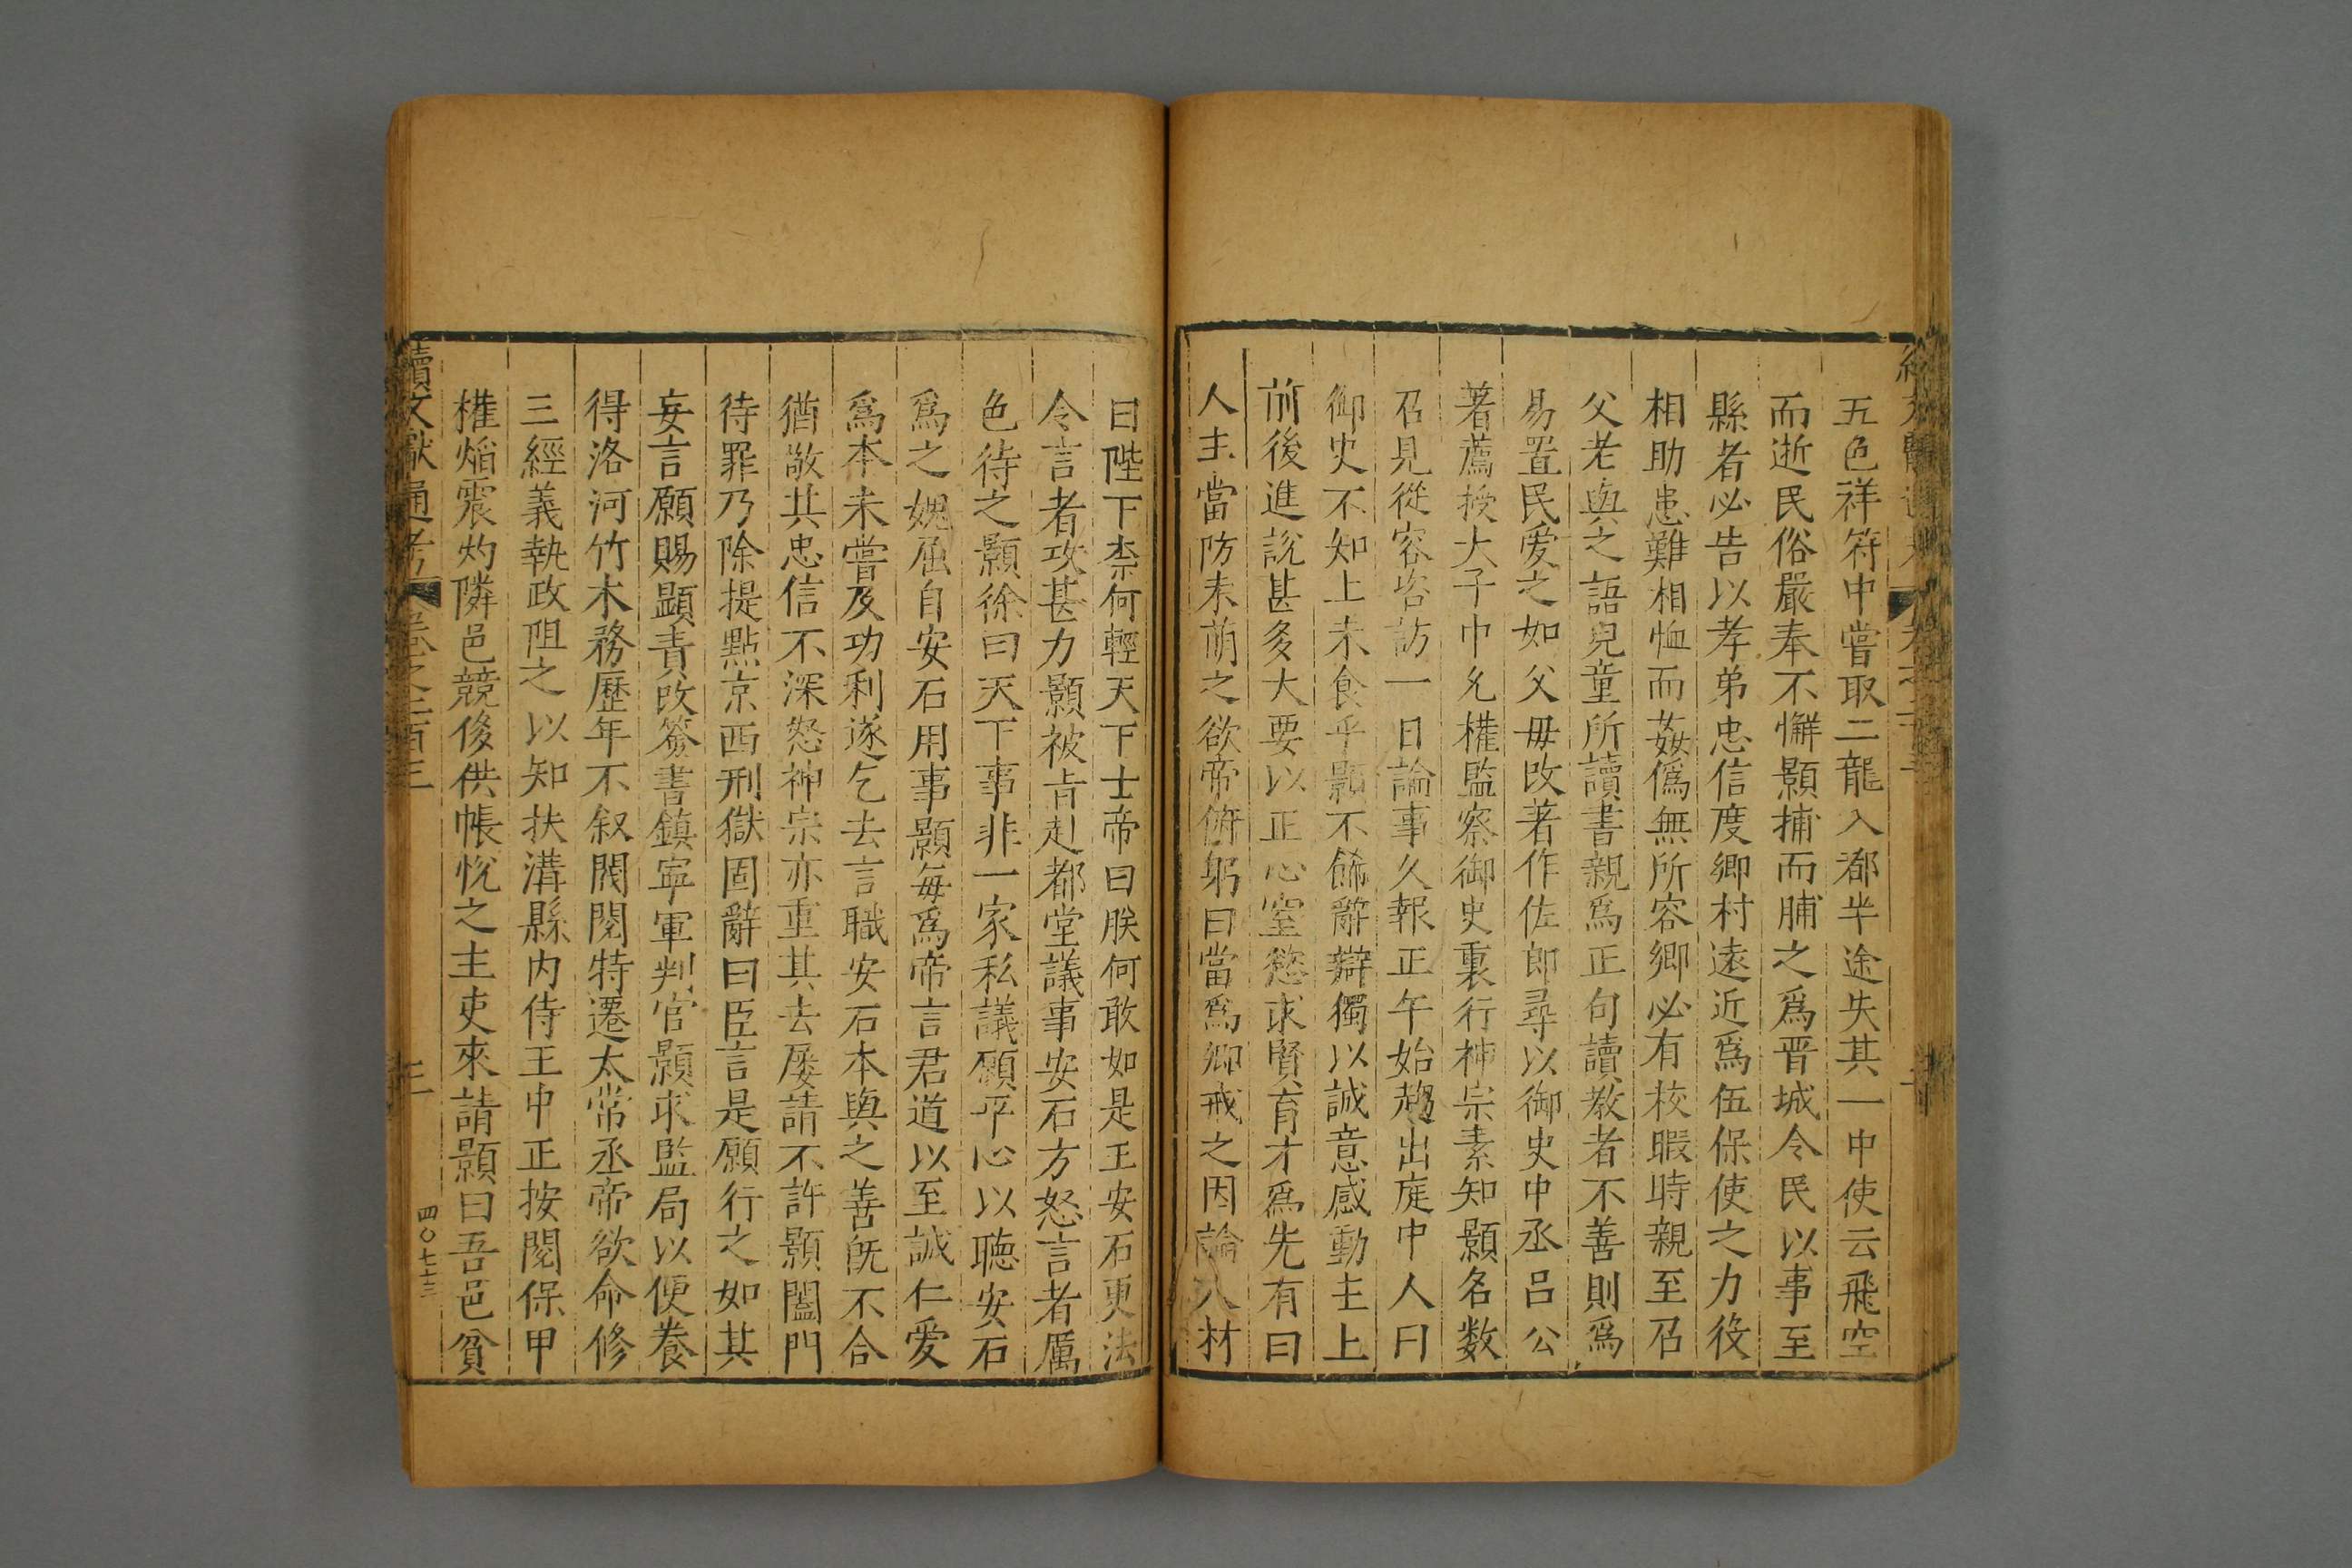 五色祥符中嘗取二龍入都半途失其一中使云飛空
而逝民俗嚴奉不懈顥捕而脯之爲晋城令民以事至
縣者必告以孝弟忠信度鄉村遠近爲伍保使之力役
相助患難相恤而姦僞無所容鄉必有校暇時親至召
父老與之語兒童所讀書親爲正句讀教者不善則爲
易置民愛之如父母改著作佐郎尋以御史中丞呂公
著薦授太子中允權監察御史裏行神宗素知顥名数
召見從容咨訪一日論事久報正午始趨出庭中人曰
御史不知上未食乎顥不飾辭辯獨以誠意感動主上
前後進說甚多大要以正心窒慾求賢育才爲先有曰
人主當防未萌之欲帝俯躬曰當爲卿戒之因論人材
曰陛下柰何輕天下士帝曰朕何敢如是王安石更法
令言者攻甚力顥被旨赴都堂議事安石方怒言者厲
色待之顥徐曰天下事非一家私議願平心以聽安石
爲之媿屈自安石用事顥每爲帝言君道以至誠仁愛
爲本未嘗及功利遂乞去言職安石本與之善旣不合
猶敬其忠信不深怒神宗亦重其去屡請不許顥闔門
待罪乃除提點京西刑獄固辭曰臣言是願行之如其
妄言願賜顯責改簽書鎮寧軍判官顥求監局以便養
得洛河竹木務歷年不叙閥閱特遷太常丞帝欲命修
三經義執政阻之以知扶溝縣内侍王中正按閱保甲
權焰震灼隣邑競侈供帳悅之主吏來請顥曰吾邑貧
續文獻通考 卷之二百三 三
四〇七十三